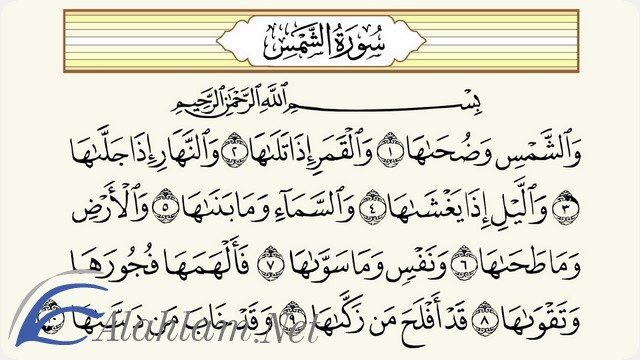 سُورَةُ الشَّمْسِ
بِسْمِ اللَّهِ الرَّحْمَٰنِ الرَّحِيمِ
وَٱلشَّمْسِ وَضُحَىٰهَا ١ وَٱلْقَمَرِ إِذَا تَلَىٰهَا ٢ وَٱلنَّهَارِ إِذَا جَلَّىٰهَا
٣ وَٱلَّيْلِ إِذَا يَغْشَىٰهَا ٤ وَٱلسَّمَآءِ وَمَا بَنَىٰهَا ٥ وَٱلْأَرْضِ
وَمَا طَحَىٰهَا ٦ وَنَفْسٍ وَمَا سَوَّىٰهَا ٧ فَأَلْهَمَهَا فُجُورَهَا
وَتَقْوَىٰهَا ٨ قَدْ أَفْلَحَ مَن زَكَّىٰهَا ٩ وَقَدْ خَابَ مَن دَسَّىٰهَا ١٠
Alahlam.Net